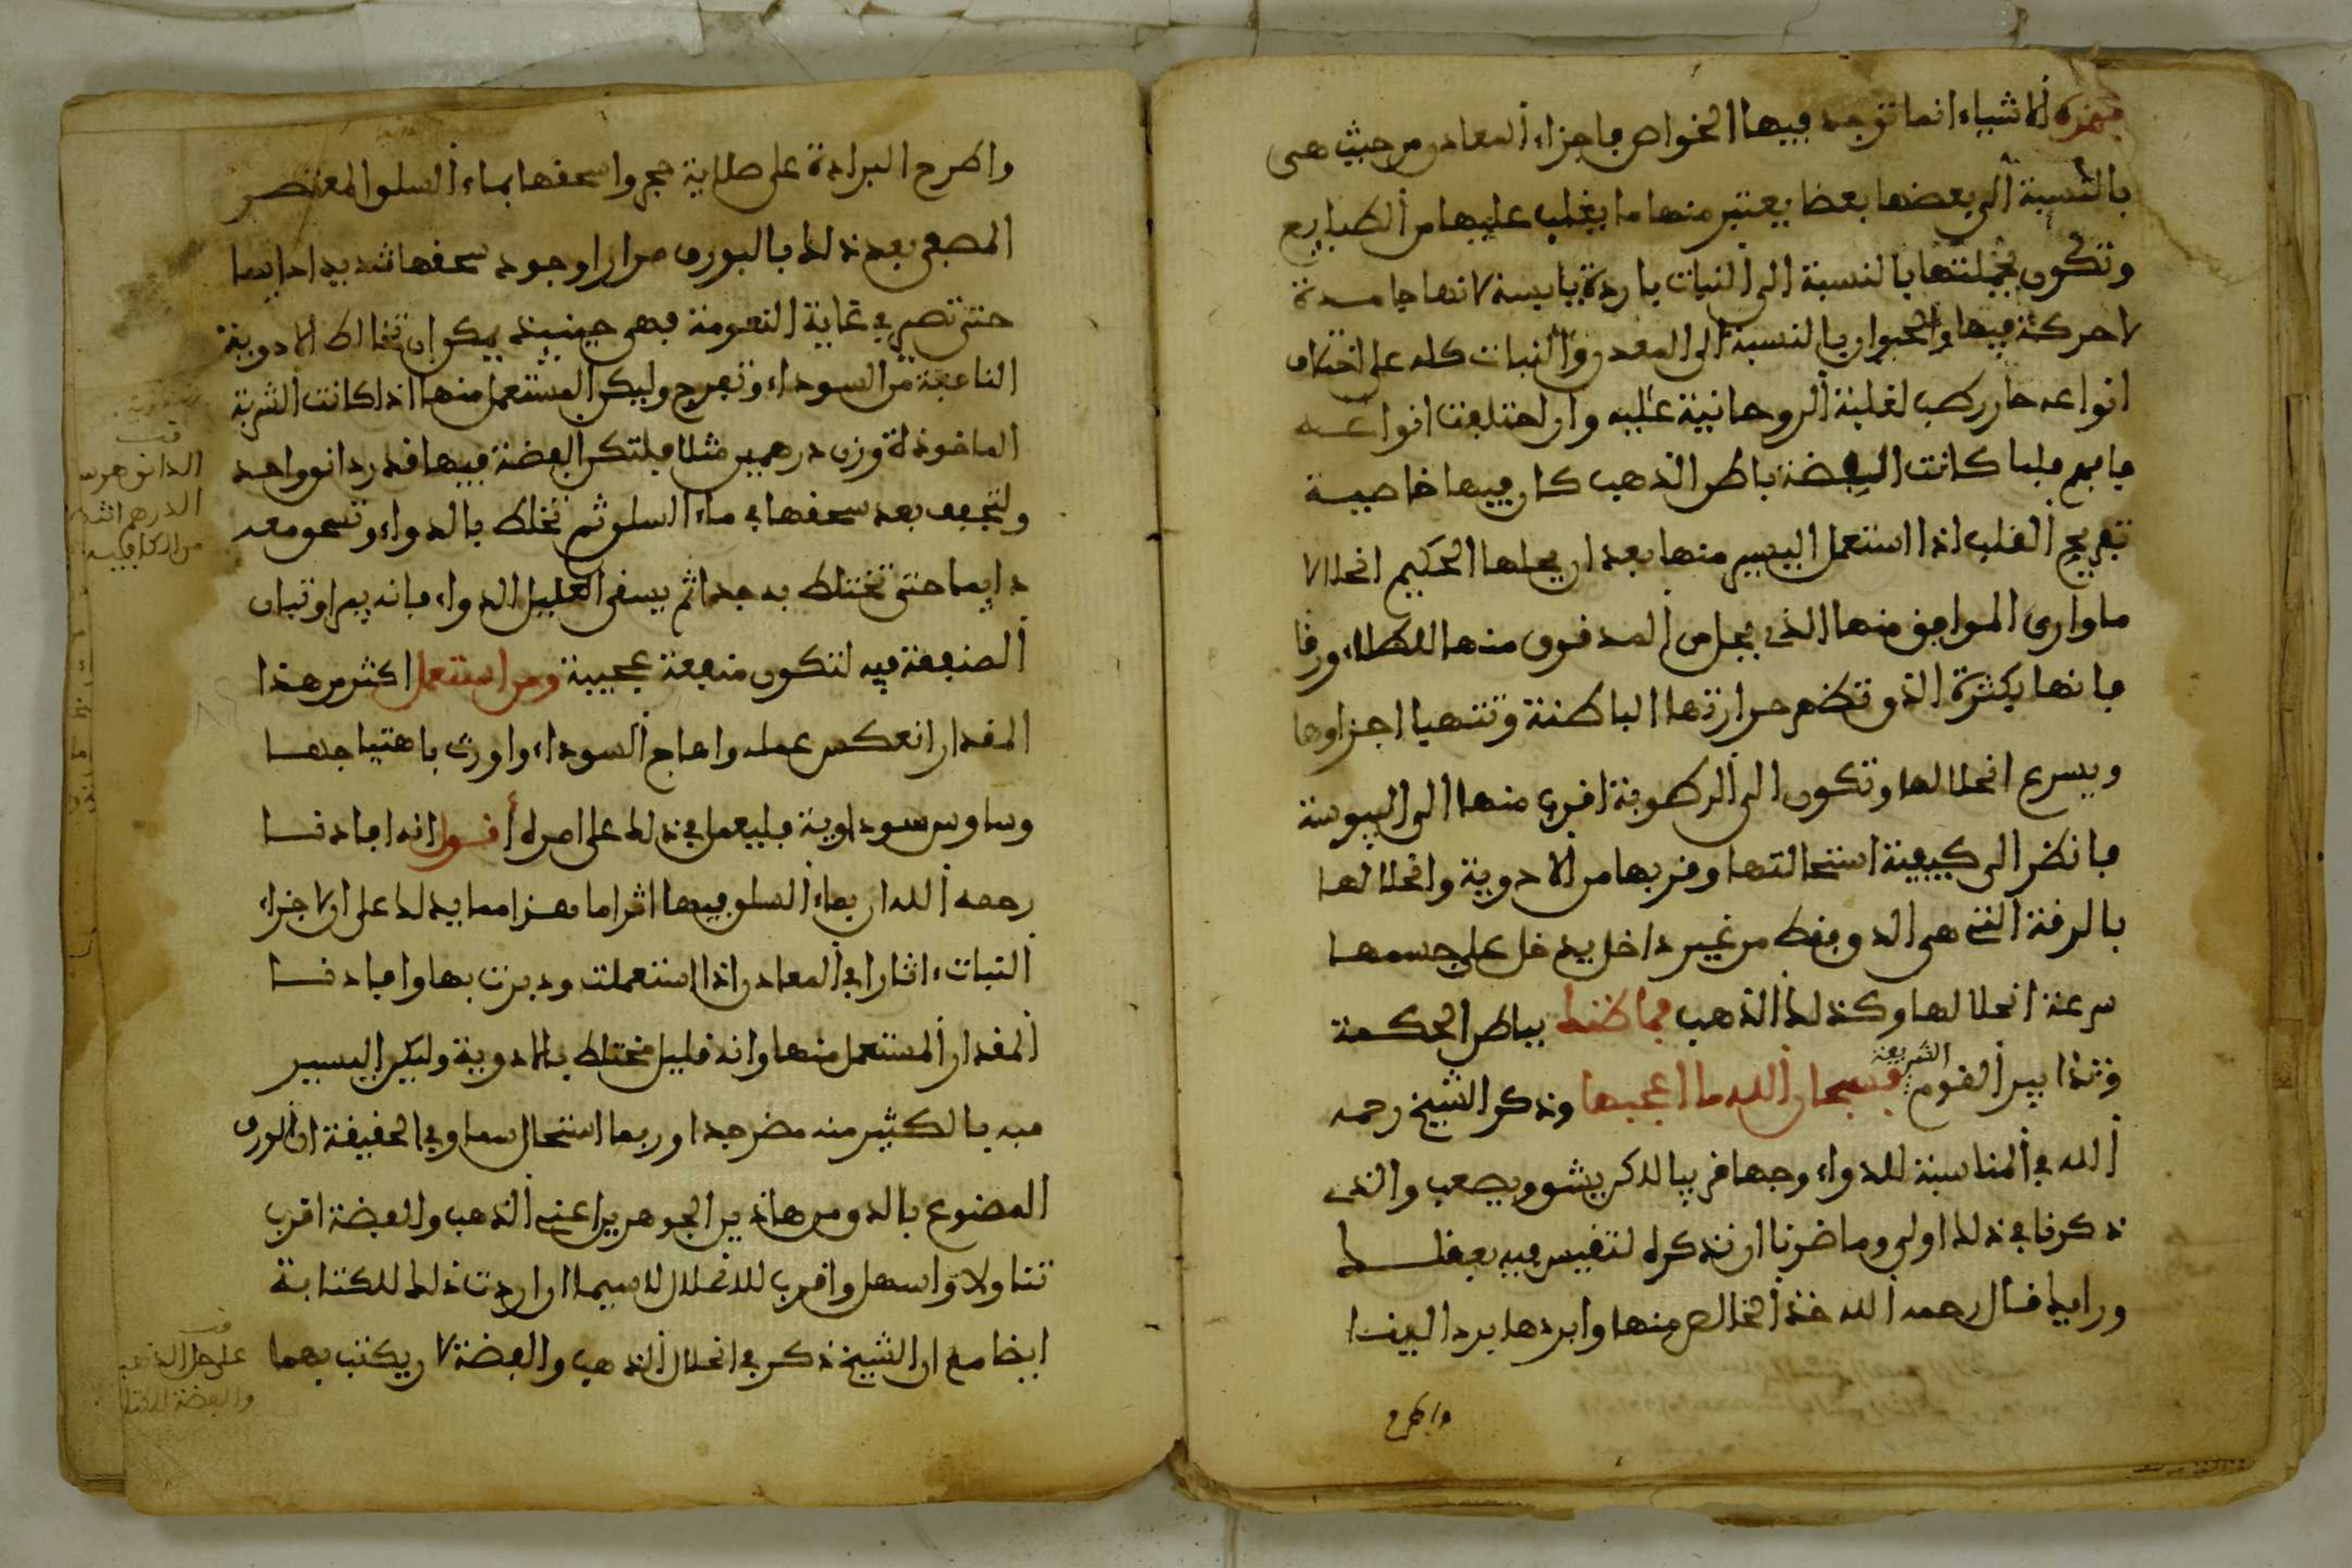 فهذه الاشياء انما توجد فيها الخواص فاجزاء المعادن من حيث هي
بالنسبة الى بعضها بعضا يعتبر منها ما يغلب عليها من الطبايع
وتكون بجملتها بالنسبة الى النبات باردة يابسة لانها جامدة
لا حركة فيها والحيوان بالنسبة الى المعدن والنبات كله على اختلاف
انواعه حار رطب لغلبة الروحانية عليه وان اختلفت انواعه
فافهم فلما كانت الفضة باطن الذهب كان فيها خاصية
تفريح القلب اذا استعمل اليسير منها بعد ان يحلها الحكيم انحلالا
ما وارى الموافق منها الذي يجعل من المدقوق منها للطلاء ورقا
فانها بكثرة الدق تظهر حرارتها الباطنة وتتهيا اجزاوها
ويسرع انحلالها وتكون الى الرطوبة اقرب منها الى اليبوسة
فانظر الى كيفية استحالتها وقربها من الادوية وانحلالها
بالرقة التي هي الدق فقط من غير داخل يدخل على جسمها
سرعة انحلالها وكذلك الذهب فما ظنك بباطن الحكمة
وتذابير القوم الشريفة فسبحان الله ما اعجبها وذكر الشيخ رحمه
الله في المناسبة للدواء وجها قريبا لاكن يشق ويصعب والذي
ذكرنا في ذلك اولى وما ضرنا ان نذكره لتقيس فيه بعقلك
ورايك قال رحمه الله خذ الخالص منها وابردها بردا ليفا
واطرح
واطرح البرادة على صلاية حجر واسحقها بماء السلق المعتصر
المصفى بعد ذلك بالبورق مرارا وجود سحقها شديدا دايما
حتى تصير في غاية النعومة فهي حينيذ يمكن ان تخالط الادوية
النافعة من السوداء وتفرح وليكن المستعمل منها اذا كانت الشربة
الماخوذة وزن درهمين مثلا فلتكن الفضة فيها قدر دانق واحد
ولتجفف بعد سحقها في ماء السلق ثم تخلط بالدواء وتسحق معه
دايما حتى تختلط به جدا ثم يسقى العليل الدواء فانه يبرا وتبان
الصنيعة فيه لتكون منفعة عجيبة ومن استعمل اكثر من هذا
المقدار انعكس عمله واهاج السوداء واورث باهتياجها
وساوس سوداوية فليعمل في ذلك على اصله أقول انه افادنا
رحمه الله ان بماء السلق فيها اثرا ما فهزا مما يدلك على ان لاجزاء
النبات، اثارا في المعادن اذا استعملت ودبرت بها وافادنا
المقدار المستعمل منها وانه قليل مختلط بالادوية وليكن اليسير
فيه بالكثير منه مضر جدا وربما استحال سما وفي الحقيقة ان الورق
المصنوع بالدق من هاذين الجوهرين اعني الذهب والفضة اقرب
تناولا واسهل واقرب للانحلال لاسيما ان اردت ذلك للكتابة
ايضا مع ان الشيخ ذكر في انحلال الذهب والفضة لان يكتب بهما
قف
الدانق هو س
الدرهم
قف
على حل الذهب
والفضة للكتا